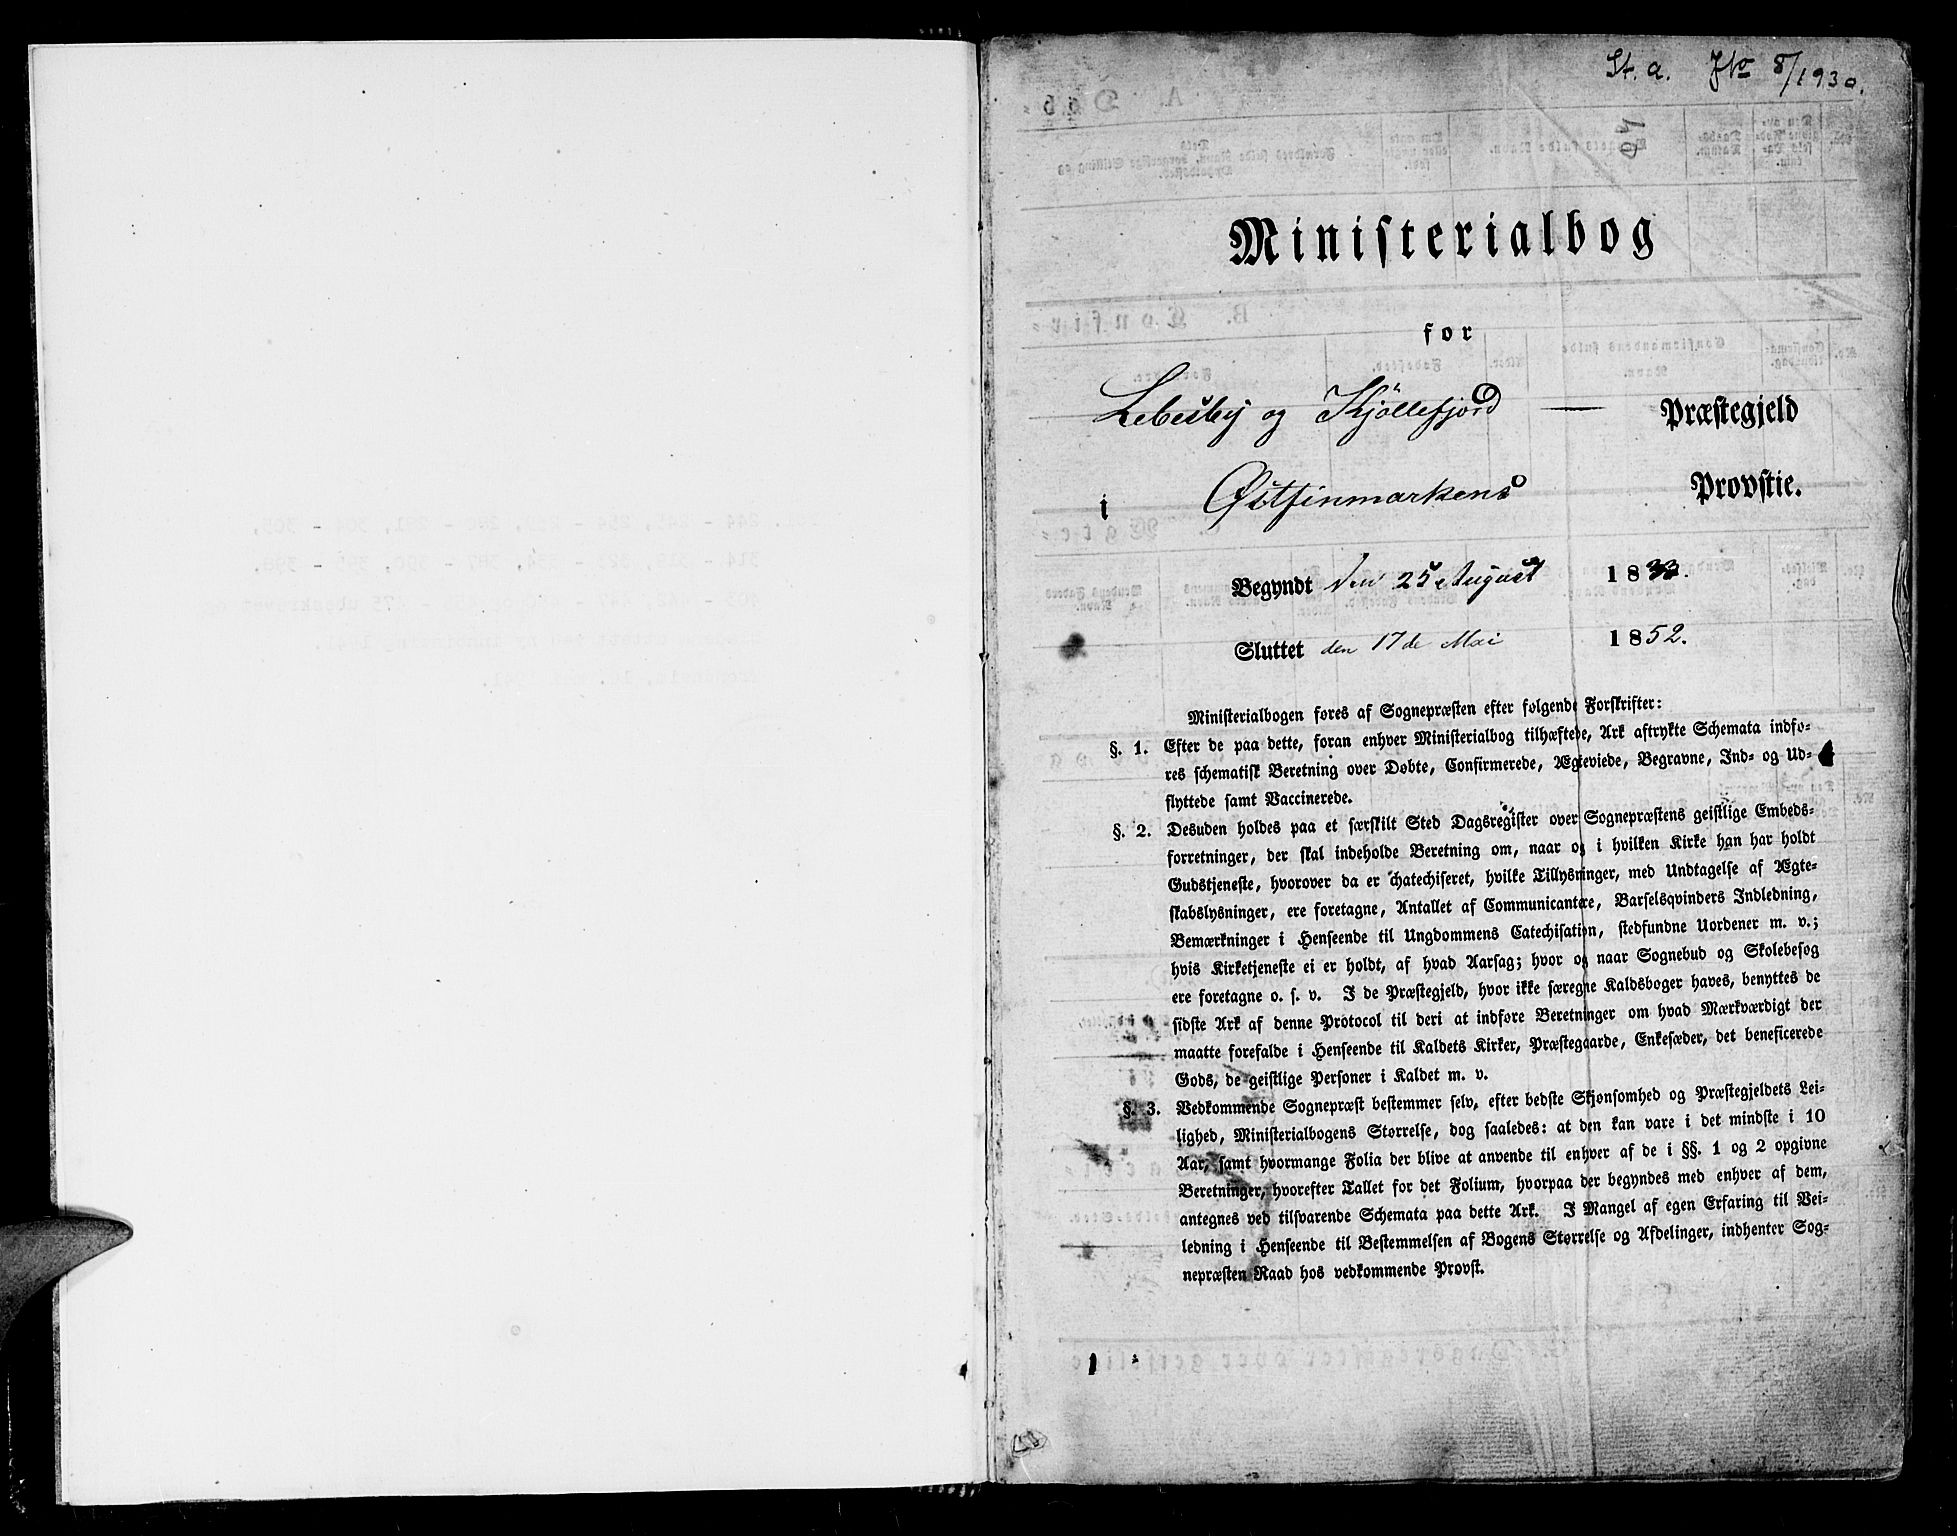 St. a. J№ 8/1930.
Ministerialbog
for
Lebesby og Kjöllefjord — Præstegjeld
i Østfinmarkens Provstie.
Begyndt den 25 August 1833.
Sluttet den 17de Mai 1852.
Ministerialbogen føres af Sognepræsten efter følgende Forskrifter:
§. 1. Efter de paa dette, foran enhver Ministerialbog tilhæftede, Ark aftrykte Schemata indfø-
res schematisk Beretning over Døbte, Confirmerede, Ægteviede, Begravne, Ind- og Ud-
flyttede samt Vaccinerede.
§. 2. Desuden holdes paa et særskilt Sted Dagsregister over Sognepræstens geistlige Embeds-
forretninger, der skal indeholde Beretning om, naar og i hvilken Kirke han har holdt
Gudstjeneste, hvorover da er chatechiseret, hvilke Tillysninger, med Undtagelse af Ægte-
skabslysninger, ere foretagne, Antallet af Communicantere, Barselqvinders Indledning,
Bemærkninger i Henseende til Ungdommens Catechisation, stedfundne Uordener m. v.;
hvis Kirketjeneste ei er holdt, af hvad Aarsag; hvor og naar Sognebud og Skolebesøg
ere foretagne o. s. v. I de Præstegjeld, hvor ikke særegne Kaldsbøger haves, benyttes de
sidste Ark af denne Protocol til deri at indføre Beretninger om hvad Mærkværdigt der
maatte forefalde i Henseende til Kaldets Kirker, Præstegaarde, Enkesæder, det beneficerede
Gods, de geistlige Personer i Kaldet m. v.
§. 3. Vedkommende Sognepræst bestemmer selv, efter bedste Skjønsomhed og Præstegjeldets Lei-
lighed, Ministerialbogens Størrelse, dog saaledes: at den kan vare i det mindste i 10
Aar, samt hvormange Folia der blive at anvende til enhver af de i §§. 1 og 2 opgivne
Beretninger, hvorefter Tallet for det Folium, hvorpaa der begyndes med enhver af dem,
antegnes ved tilsvarende Schemata paa dette Ark. I Mangel af egen Erfaring til Vei-
ledning i Henseende til Bestemmelsen af Bogens Størrelse og Afdelinger, indhenter Sog-
nepræsten Raad hos vedkommende Provst.